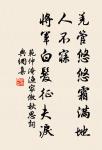 羌管悠悠霜滿地
人不寐
將軍白髮征夫淚
范仲淹漁家傲秋思詞
典網集